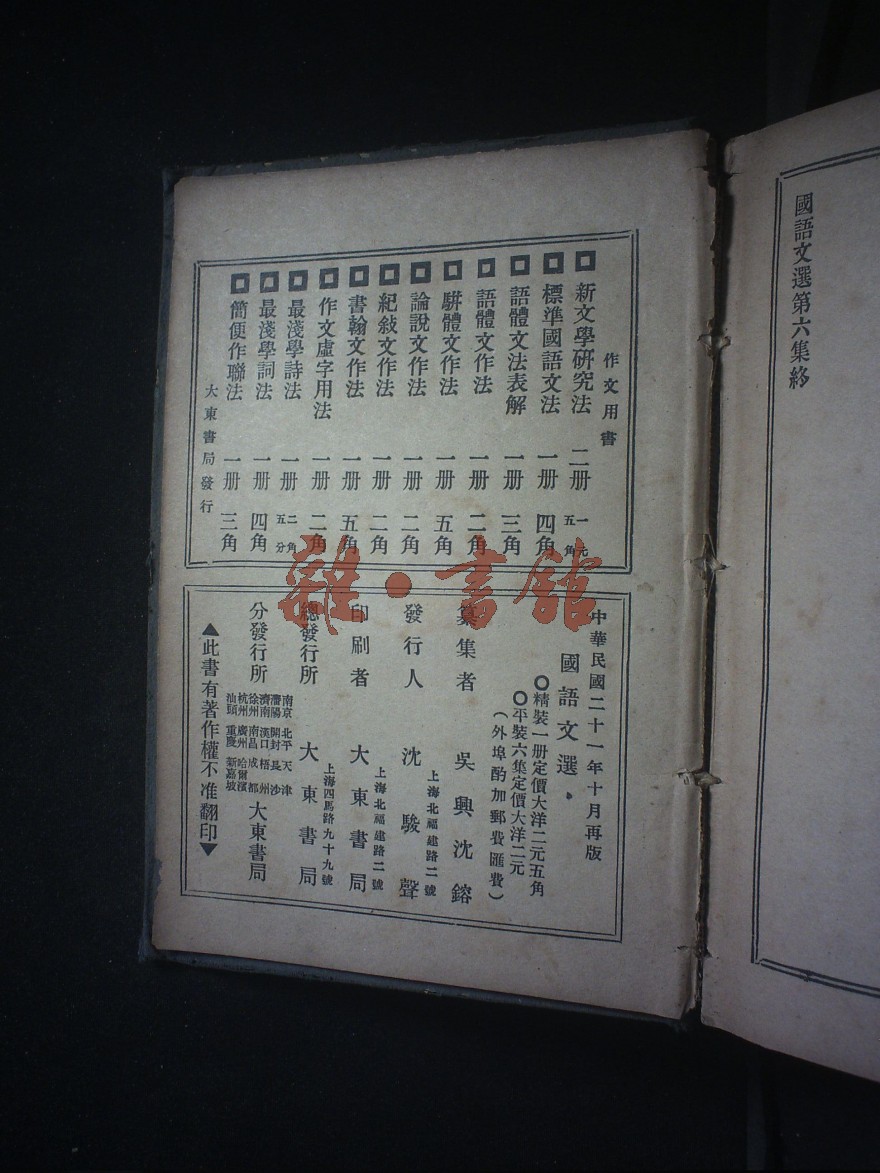 國語文選第六集終
作文用書
新文學研究法 二册 一元五角
標準國語文法 一册 四角
語體文法表解 一册 三角
語體文作法 一册 二角
駢體文作法 一册 五角
論說文作法 一册 二角
紀敍文作法 一册 二角
書翰文作法 一册 五角
作文虛字用法 一册 二角
最淺學詩法 一册 二角五分
最淺學詞法 一册 四角
簡便作聯法 一册 三角
大東書局發行
中華民國二十一年十月再版
國語文選
精裝一册定價大洋二元五角
平裝六集定價大洋二元
(外埠酌加郵費匯費)
纂集者 吳興沈鎔
上海北福建路二號
發行人 沈駿聲
上海北福建路二號
印刷者 大東書局
上海四馬路九十九號
總發行所 大東書局
南京 北平 天津
瀋陽 開封 長沙
濟南 漢口 梧州
徐州 南昌 成都
杭州 廣州 哈爾濱
汕頭 重慶 新嘉坡
分發行所 大東書局
▲此書有著作權不准翻印▼
雜·書館